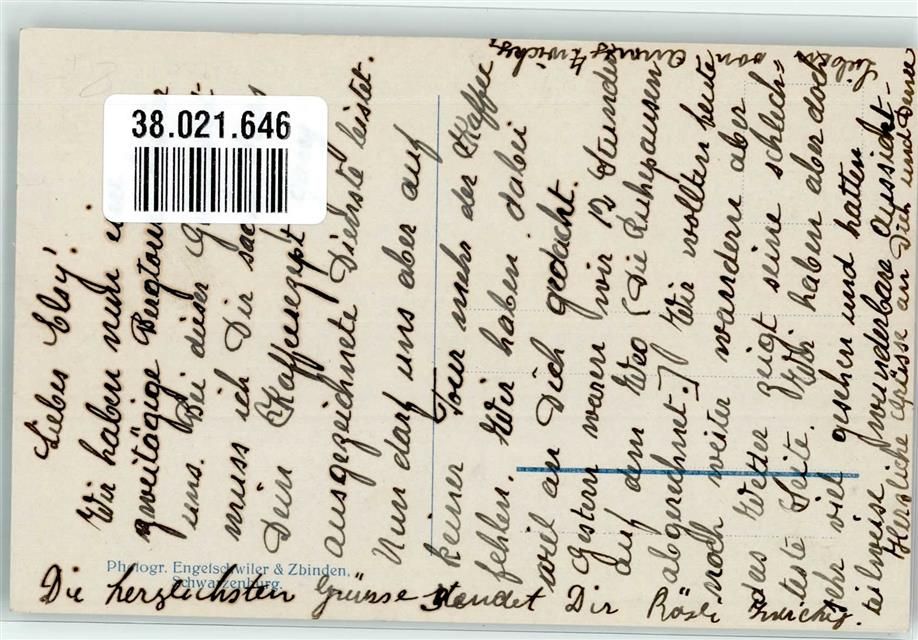 38.021.646
Lieber Eloy!
Wir haben nun
zweitägige Bergtour
uns. Bei dieser
muss ich Dir
Dein Kaffeerezept
ausgezeichnete Dienste leistet.
Nun darf uns aber auf
keiner Tour mehr der Kaffee
fehlen. Wir haben dabei
viel an Dich gedacht.
Gestern waren wir 12 Stunden
auf dem Weg (Die Ruhepausen
abgerechnet.) Wir wollten heute
noch weiter wandern aber
das Wetter zeigt seine schlech=
teste Seite. Wir haben aber doch
sehr viel gesehen und hatten
teilweise wunderbare Aussicht.
Herzliche Grüsse an Dich und Deine
Lieben von
Zwicky.
Photogr. Engelschwiler & Zbinden,
Schwarzenburg.
Die herzlichsten Grüsse sendet Dir Rösli Zwicky.